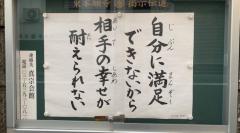 自分に満足
じぶん
まんぞく
できないから
相手の幸せが
あいて
しあわ
耐えられない
た
真宗会館